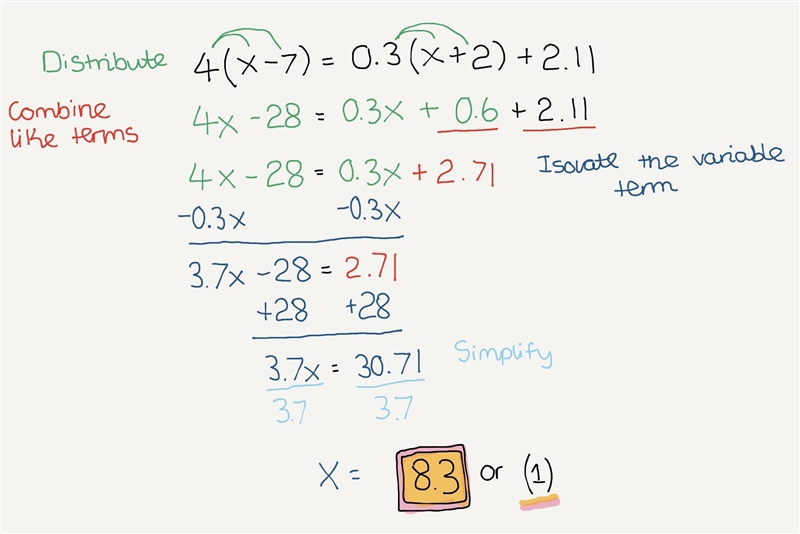 Distribute 4(x-7) = 0.3(x+2) + 2.11
Combine like terms
4x - 28 = 0.3x + 0.6 + 2.11
4x - 28 = 0.3x + 2.71
Isolate the variable term
-0.3x -0.3x
3.7x - 28 = 2.71
+28 +28
3.7x = 30.71 Simplify
3.7 3.7
x = 8.3 or (1)